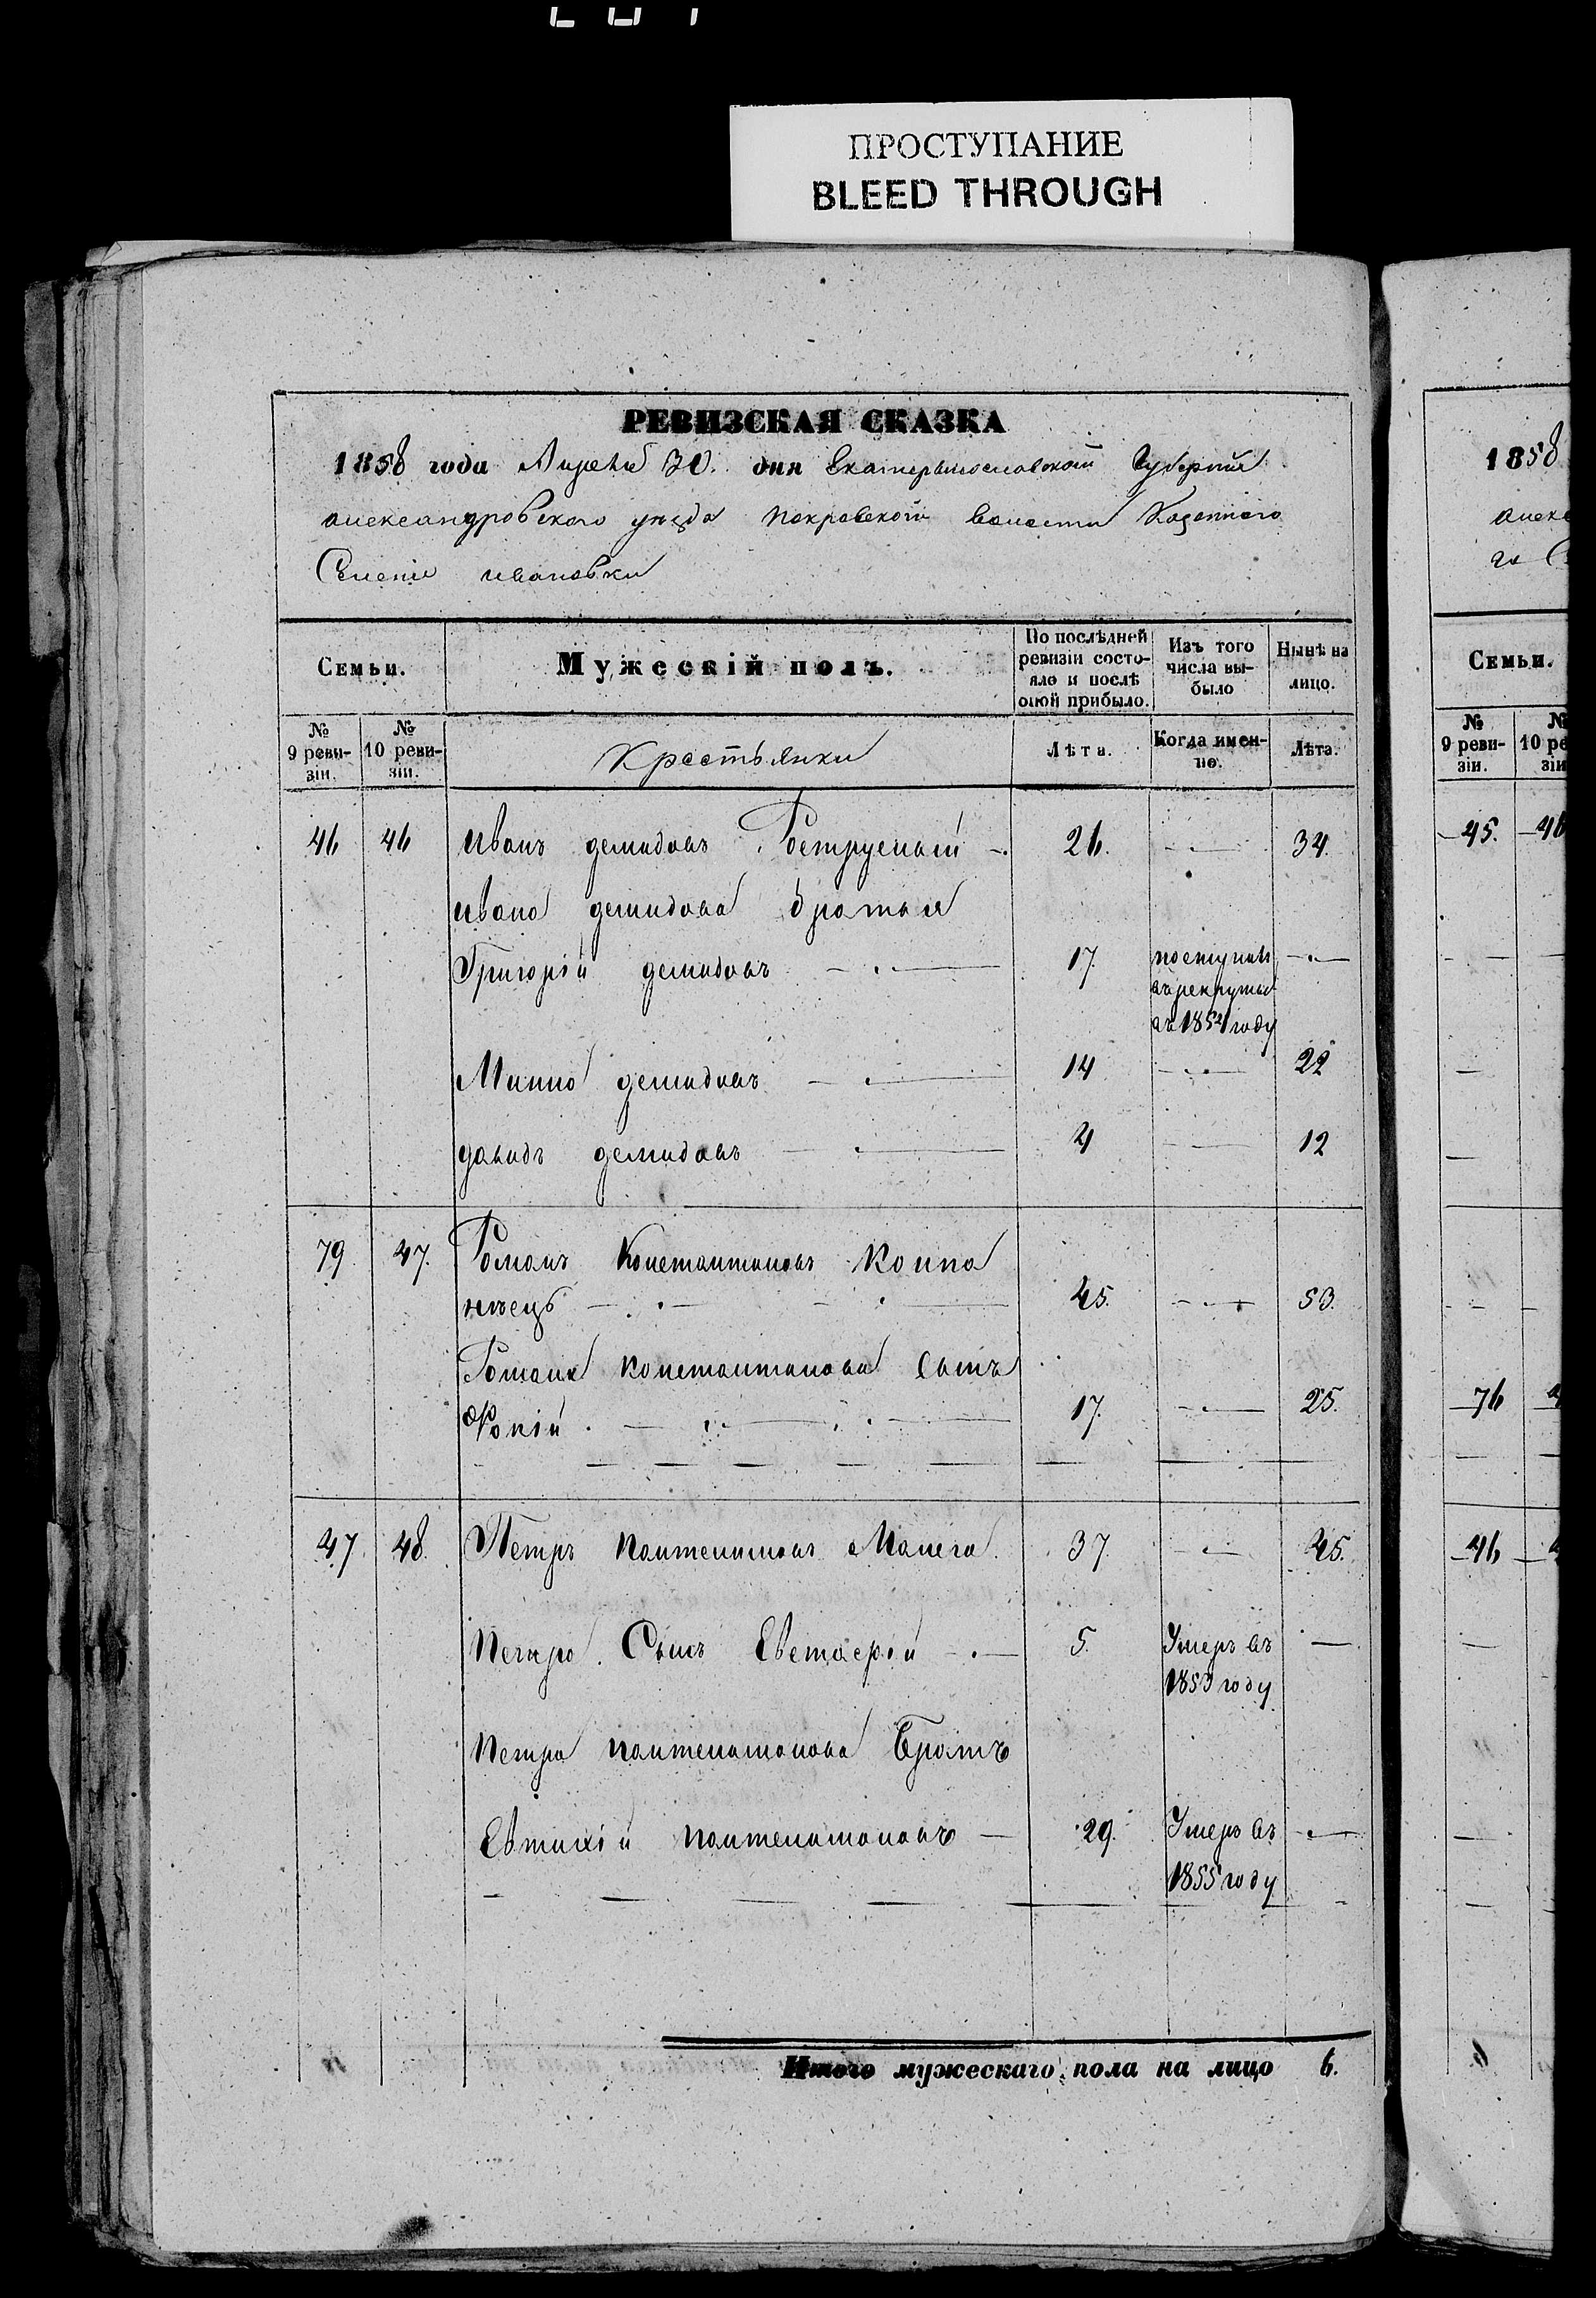 ПРОСТУПАНИЕ
BLEED THROUGH
РЕВИЗСКАЯ СКАЗКА
1858 года Апреля 30. дня Екатеринославской Губернии
александровского уезда покровской волости Казенного
Селения ивановки
Семьи.
Мужескій полъ.
По послѣдней ревизіи состояло и послѣ оной прибыло.
Изъ того числа выбыло
Нынѣ на лицо.
№ 9 ревизіи.
№ 10 ревизіи.
Лѣта.
Когда именно.
Лѣта.
46 46 иванъ демидовъ 26. 34.
ивана демидова братья
Григорій демидовъ 17. поступилъ
въ рекруты
въ 1854 году
демидовъ 14 22
давидъ демидовъ 4 12
79. 47. Романъ Константиновъ Колпа
нѣецъ 45. 53.
Романа константинова Сынъ
Фокій 17. 25.
47 48. Петръ пантелимоновъ 37. 45.
петра Сынъ 5. Умеръ въ
1853 году
петра пантелимонова Братъ
Евтихій пантелимоновъ 29. Умеръ въ
1855 году
Итого мужескаго пола на лицо 6.
1858
алекс
Семьи.
№ 9 ревизіи.
45.
76
46